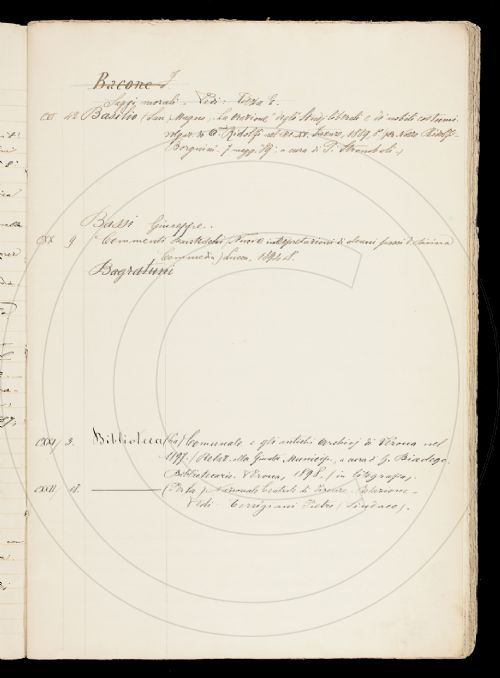 Bacone F
Saggi morali. Vedi:
CXX 42 Basilio (San) Magno. La orazione degli Studj liberali e de' nobili costumi
Ridolfi nel Firenze, 1889 8° per Nozze Ridolfi
Borgnini. 7 magg. 89: a cura di P. Stromboli
Bassi Giuseppe.
CXX 9 Commenti Danteschi, Nuove interpretazioni di alcuni passi d. Divina
Commedia) Lucca. 1894 8.
Bagratuni
CXXI 3. Biblioteca (La) Comunale e gli antichi archivj di Verona nel
1897. (Relaz. alla Giunta Municip. a cura d. G. Biadego
Bibliotecario. Verona, 1898. (in litografia)
CXXII 18. (Detta) Nazionale Centrale di Firenze. Relazione
Vedi Torrigiani Pietro (Sindaco).